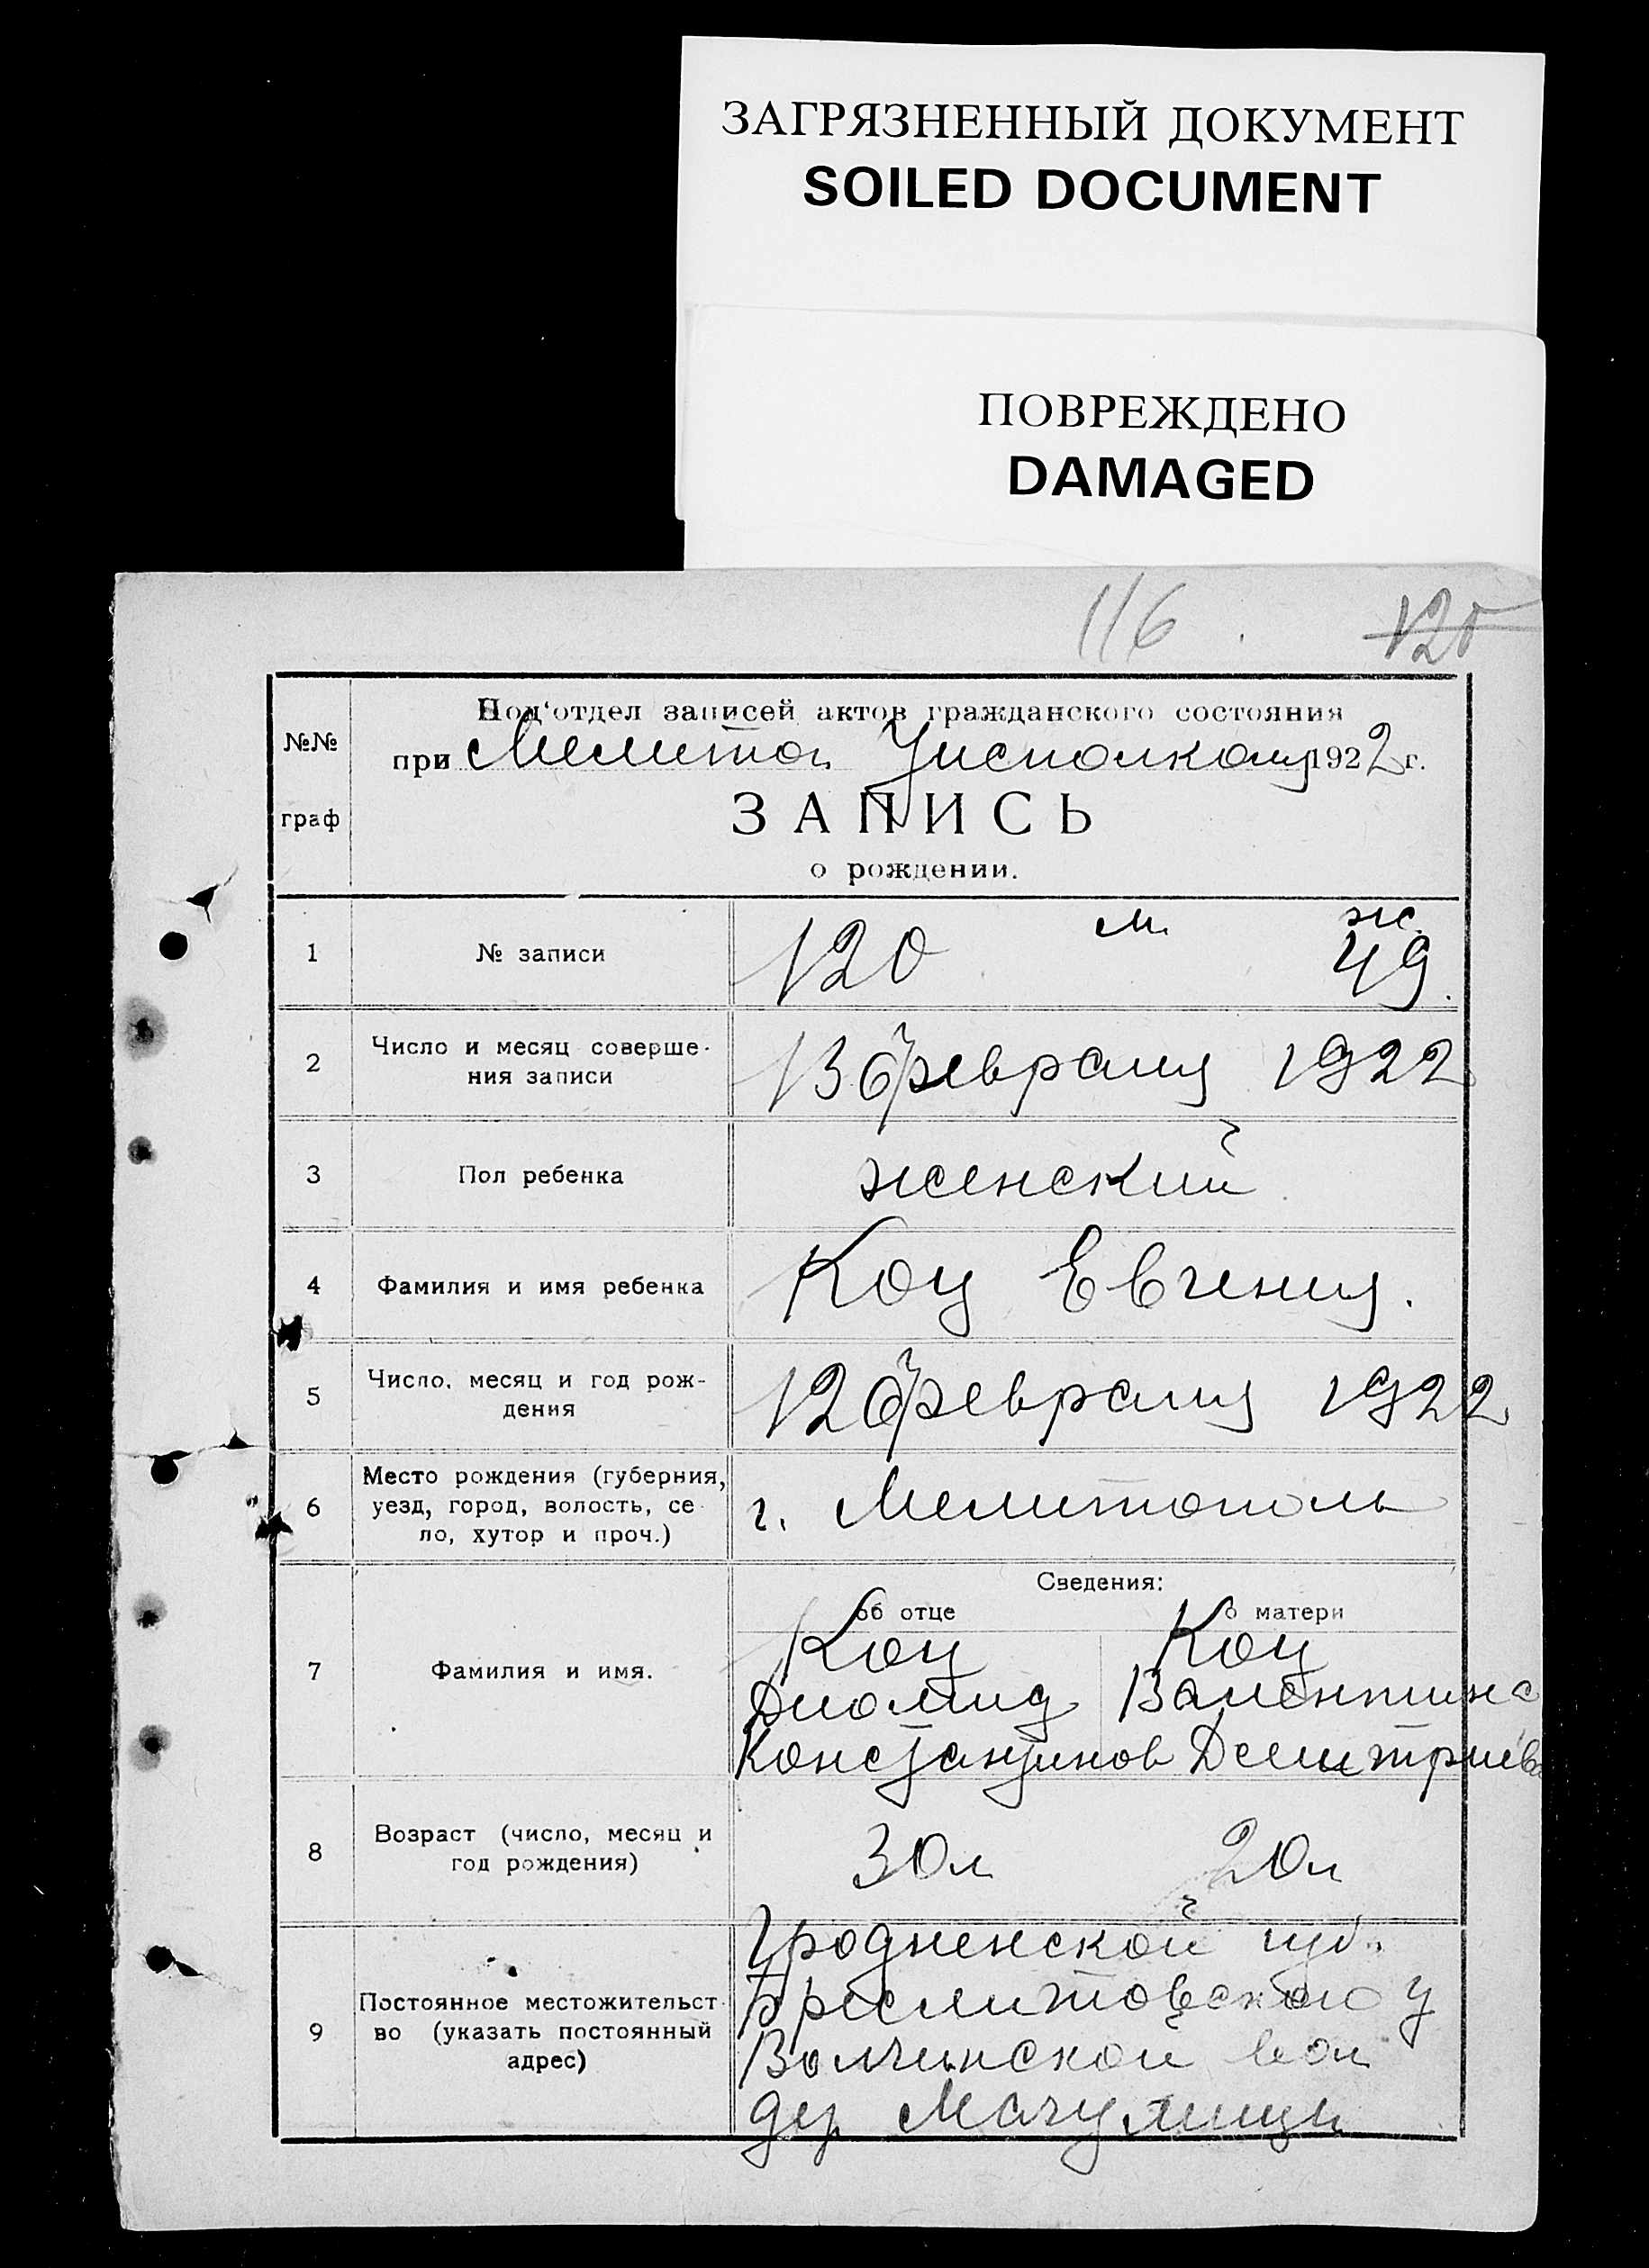 ЗАГРЯЗНЕННЫЙ ДОКУМЕНТ
SOILED DOCUMENT
ПОВРЕЖДЕНО
DAMAGED
116
120
№№
граф
Под'отдел записей актов гражданского состояния
при Мелитоп. Уисполкому 1922 г.
ЗАПИСЬ
о рождении.
1
№ записи
120 м. ж. 49.
2
Число и месяц соверше-
ния записи
13 февраля 1922
3
Пол ребенка
женский
4
Фамилия и имя ребенка
Коц Евгения.
5
Число, месяц и год рож-
дения
12 февраля 1922
6
Место рождения (губерния,
уезд, город, волость, се
ло, хутор и проч.)
г. Мелитополь
Сведения:
об отце
о матери
7
Фамилия и имя.
Коц
Диомид
Константинов
Коц
Валентина
Дмитриева
8
Возраст (число, месяц и
год рождения)
30 л
20 л
9
Постоянное местожительст-
во (указать постоянный
адрес)
Гродненской губ.
Брислитовского у
Волчинской вол
дер Мачулищи